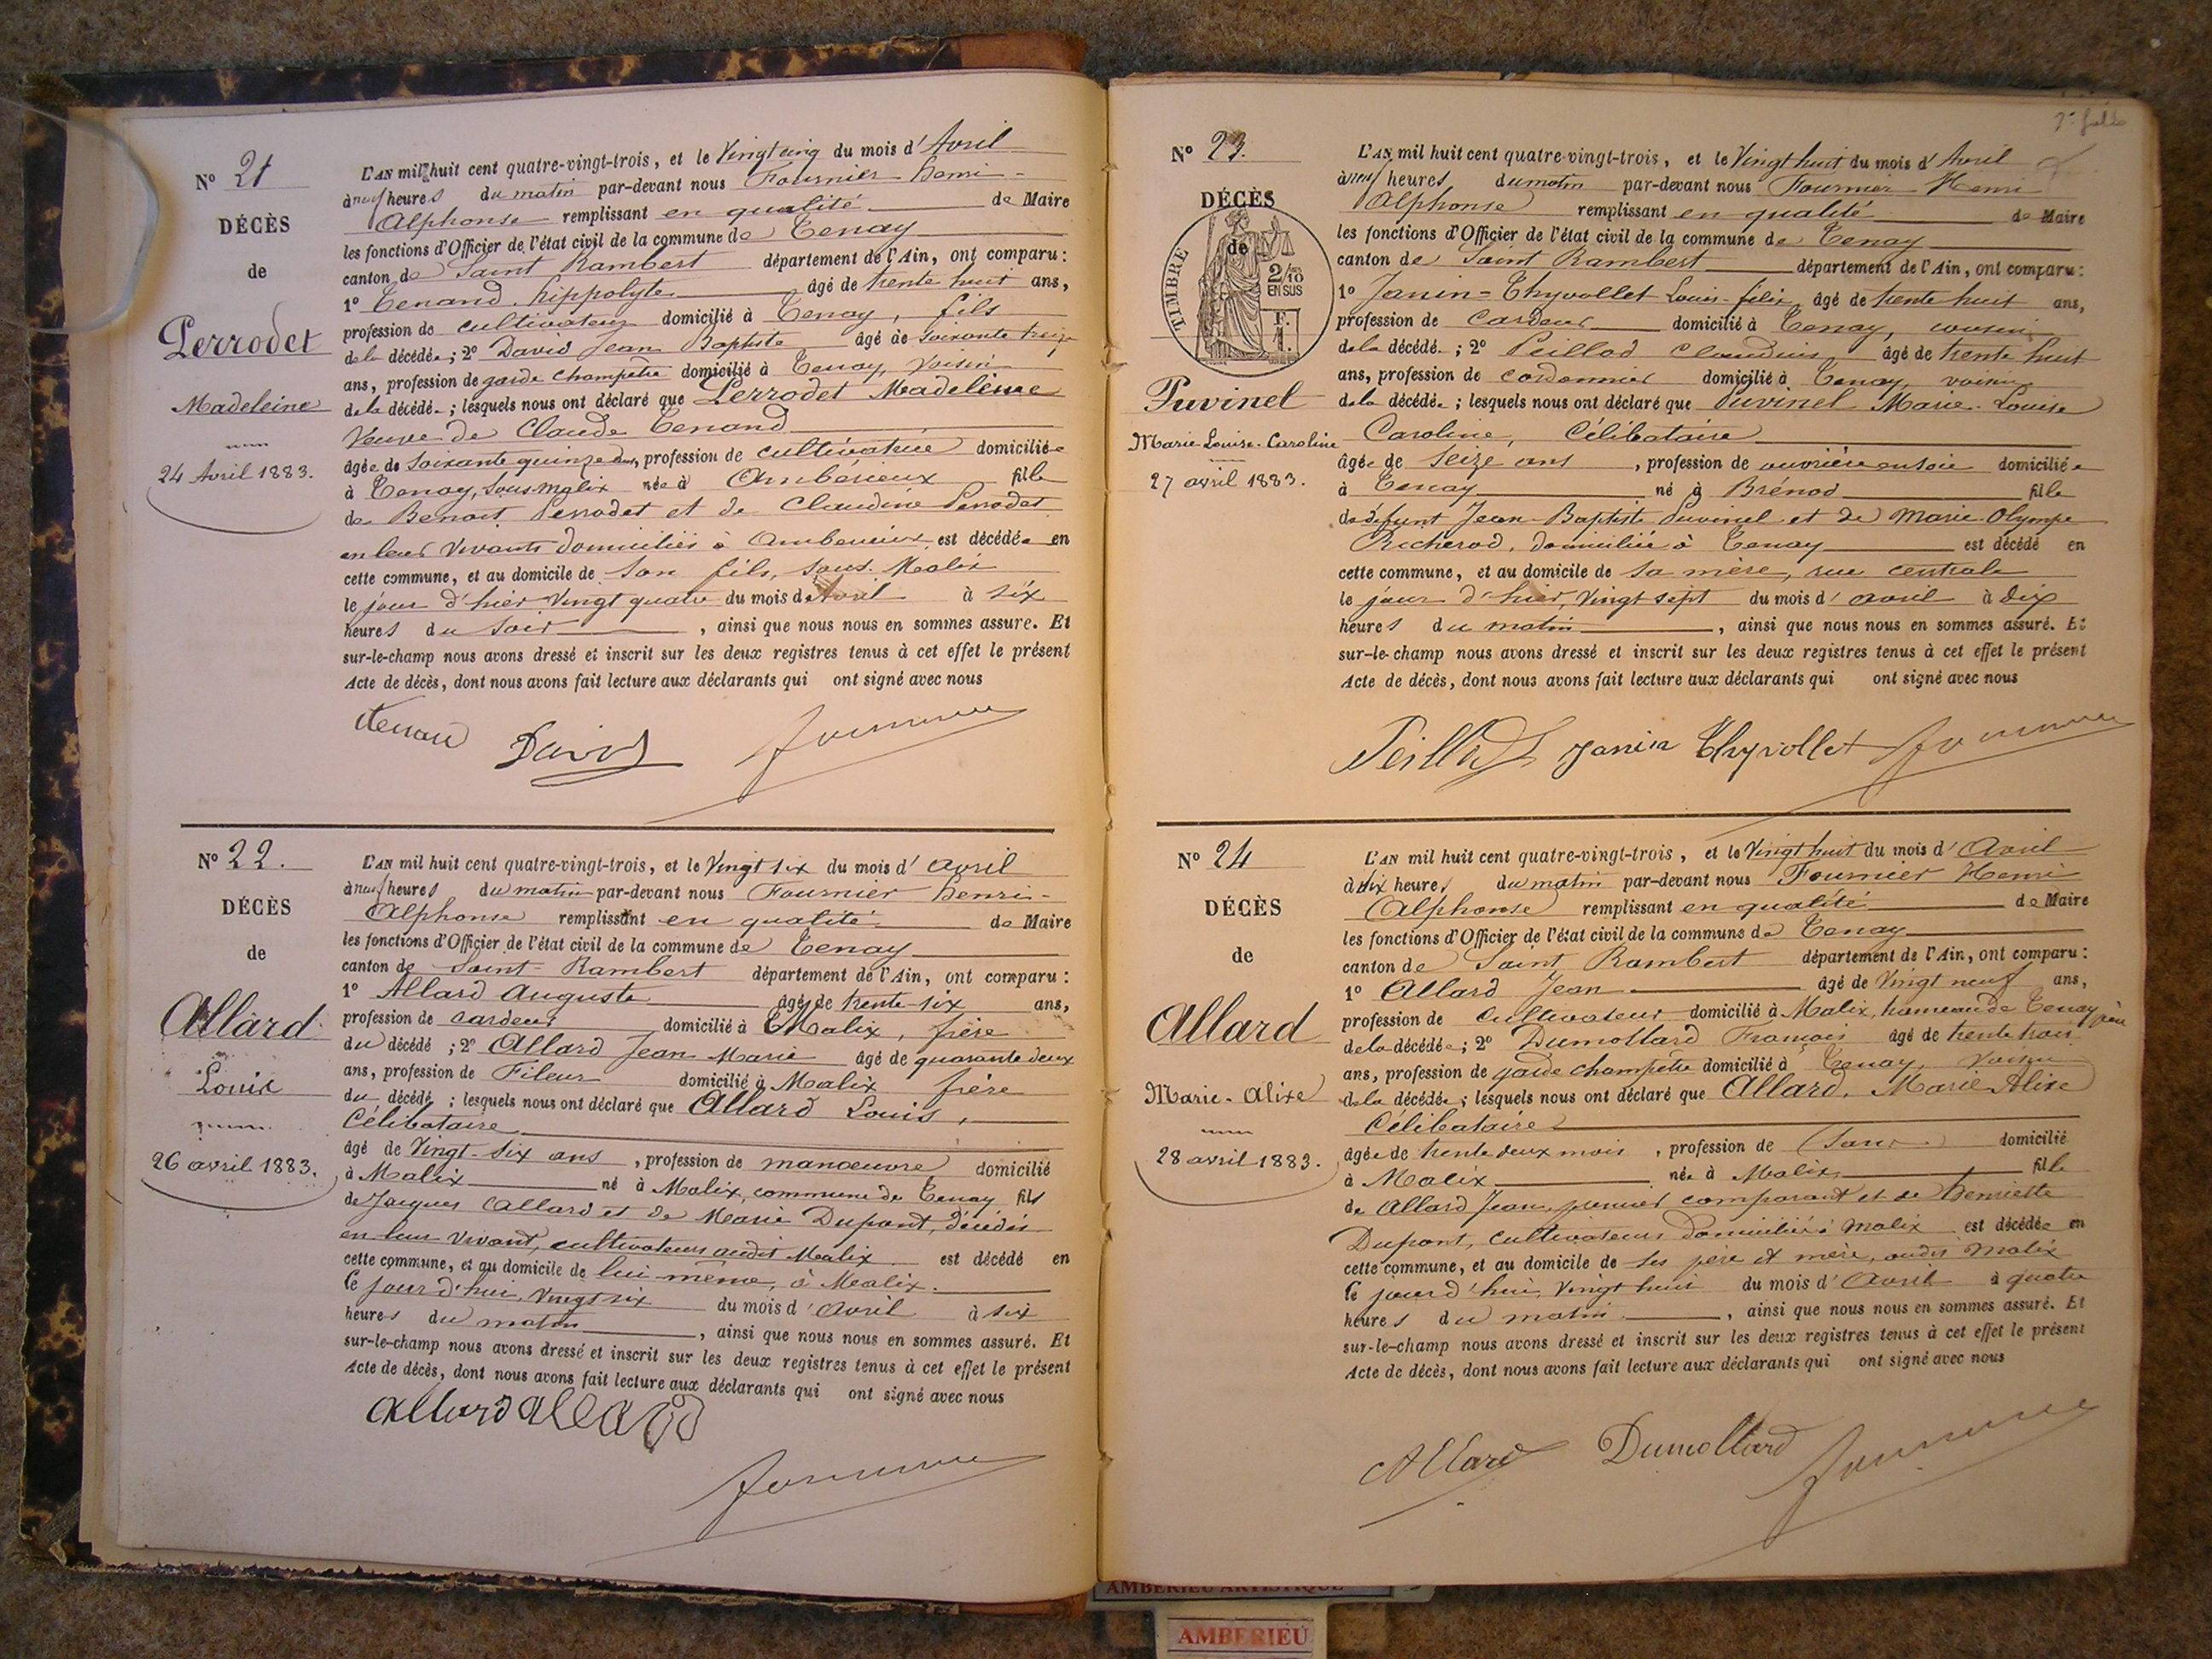 N° 21
DÉCÈS
de
Perrodet
Madeleine
24 Avril 1883.
L'AN mil huit cent quatre-vingt-trois, et le Vingt cinq du mois d'Avril
à neuf heures du matin par-devant nous Fournier Henri-
Alphonse remplissant en qualité de Maire
les fonctions d'Officier de l'état civil de la commune de Tenay
canton de Saint Rambert département de l'Ain, ont comparu:
1° Tenand hippolyte âgé de trente huit ans,
profession de cultivateur domicilié à Tenay, fils
de la décédée; 2° David Jean Baptiste âgé de soixante treize
ans, profession de garde champêtre domicilié à Tenay, voisin
de la décédée; lesquels nous ont déclaré que Perrodet Madeleine
Veuve de Claude Tenand
âgée de soixante quinze ans, profession de cultivatrice domiciliée
à Tenay, sous Malix née à Ambérieux fille
de Benoit Perrodet et de Claudine Perrodet
en leur vivants domiciliés à Ambérieux est décédée en
cette commune, et au domicile de son fils, sous Malix
le jour d'hier Vingt quatre du mois d'Avril à six
heures du soir, ainsi que nous nous en sommes assuré. Et
sur-le-champ nous avons dressé et inscrit sur les deux registres tenus à cet effet le présent
Acte de décès, dont nous avons fait lecture aux déclarants qui ont signé avec nous
Tenand David Fournier
N° 22.
DÉCÈS
de
Allard
Louis
26 avril 1883.
L'AN mil huit cent quatre-vingt-trois, et le Vingt six du mois d'avril
à neuf heures du matin par-devant nous Fournier Henri-
Alphonse remplissant en qualité de Maire
les fonctions d'Officier de l'état civil de la commune de Tenay
canton de Saint-Rambert département de l'Ain, ont comparu:
1° Allard Auguste âgé de trente-six ans,
profession de cardeur domicilié à Malix, frère
du décédé; 2° Allard Jean Marie âgé de quarante deux
ans, profession de Fileur domicilié à Malix frère
du décédé; lesquels nous ont déclaré que Allard Louis,
Célibataire
âgé de Vingt-six ans, profession de manœuvre domicilié
à Malix né à Malix, commune de Tenay fils
de Jacques Allard et de Marie Dupont, décédés
en leur vivant, cultivateurs audit Malix est décédé en
cette commune, et au domicile de lui même, à Malix.
le jour d'hui, Vingt six du mois d'avril à six
heures du matin, ainsi que nous nous en sommes assuré. Et
sur-le-champ nous avons dressé et inscrit sur les deux registres tenus à cet effet le présent
Acte de décès, dont nous avons fait lecture aux déclarants qui ont signé avec nous
Allard Allard
Fournier
N° 23.
DÉCÈS
de
TIMBRE
2/10
EN SUS
F.
1.
Puvinel
Marie-Louise-Caroline
27 avril 1883.
L'AN mil huit cent quatre-vingt-trois, et le Vingt huit du mois d'Avril
à neuf heures du matin par-devant nous Fournier Henri
Alphonse remplissant en qualité de Maire
les fonctions d'Officier de l'état civil de la commune de Tenay
canton de Saint Rambert département de l'Ain, ont comparu:
1° Janin-Thyvollet Louis-félix âgé de trente huit ans,
profession de Cardeur domicilié à Tenay, cousin
de la décédée; 2° Peillod Claudius âgé de trente huit
ans, profession de cordonnier domicilié à Tenay, voisin
de la décédée; lesquels nous ont déclaré que Puvinel Marie-Louise
Caroline, Célibataire
âgée de seize ans, profession de ouvrière en soie domiciliée
à Tenay né à Brénod fille
de défunt Jean-Baptiste Puvinel et de Marie-Olympe
Richerod, domiciliée à Tenay est décédé en
cette commune, et au domicile de sa mère, rue centrale
le jour d'hier, Vingt sept du mois d'avril à dix
heures du matin, ainsi que nous nous en sommes assuré. Et
sur-le-champ nous avons dressé et inscrit sur les deux registres tenus à cet effet le présent
Acte de décès, dont nous avons fait lecture aux déclarants qui ont signé avec nous
Peillod Janin Thyvollet Fournier
N° 24
DÉCÈS
de
Allard
Marie-Alixe
28 avril 1883.
L'AN mil huit cent quatre-vingt-trois, et le Vingt huit du mois d'Avril
à dix heures du matin par-devant nous Fournier Henri
Alphonse remplissant en qualité de Maire
les fonctions d'Officier de l'état civil de la commune de Tenay
canton de Saint Rambert département de l'Ain, ont comparu:
1° Allard Jean âgé de Vingt neuf ans,
profession de Cultivateur domicilié à Malix, hameau de Tenay père
de la décédée; 2° Dumollard François âgé de trente trois
ans, profession de garde champêtre domicilié à Tenay, voisin
de la décédée; lesquels nous ont déclaré que Allard, Marie Alixe
Célibataire
âgée de trente deux mois, profession de (Sans) domicilié
à Malix née à Malix fille
de Allard Jean, premier comparant et de Henriette
Dupont, cultivateurs domiciliés à Malix est décédée en
cette commune, et au domicile de ses père et mère, audit Malix
le jour d'hui, Vingt huit du mois d'Avril à quatre
heures du matin, ainsi que nous nous en sommes assuré. Et
sur-le-champ nous avons dressé et inscrit sur les deux registres tenus à cet effet le présent
Acte de décès, dont nous avons fait lecture aux déclarants qui ont signé avec nous
Allard Dumollard Fournier
AMBERIEU ARTISTIQUE
AMBERIEU